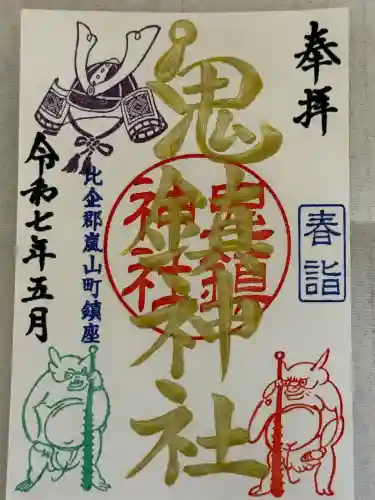 奉拝
春詣
鬼鎮神社
鬼鎮神社
比企郡嵐山町鎮座
令和七年五月